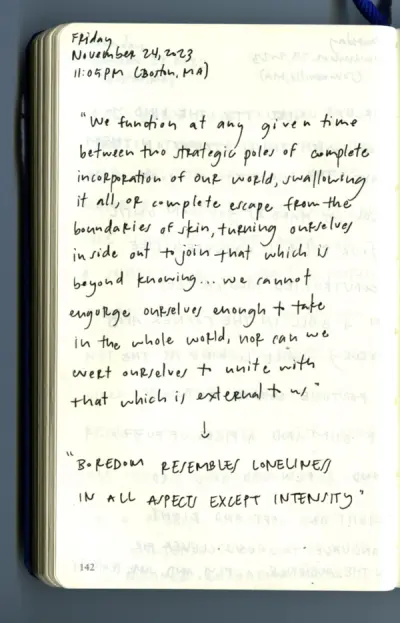 Friday
November 24, 2023
11:05 PM (Boston, MA)
"We function at any given time
between two strategic poles of complete
incorporation of our world, swallowing
it all, or complete escape from the
boundaries of skin, turning ourselves
inside out to join that which is
beyond knowing... we cannot
engorge ourselves enough to take
in the whole world, nor can we
evert ourselves to unite with
that which is external to us"
↓
"BOREDOM RESEMBLES LONELINESS
IN ALL ASPECTS EXCEPT INTENSITY"
142